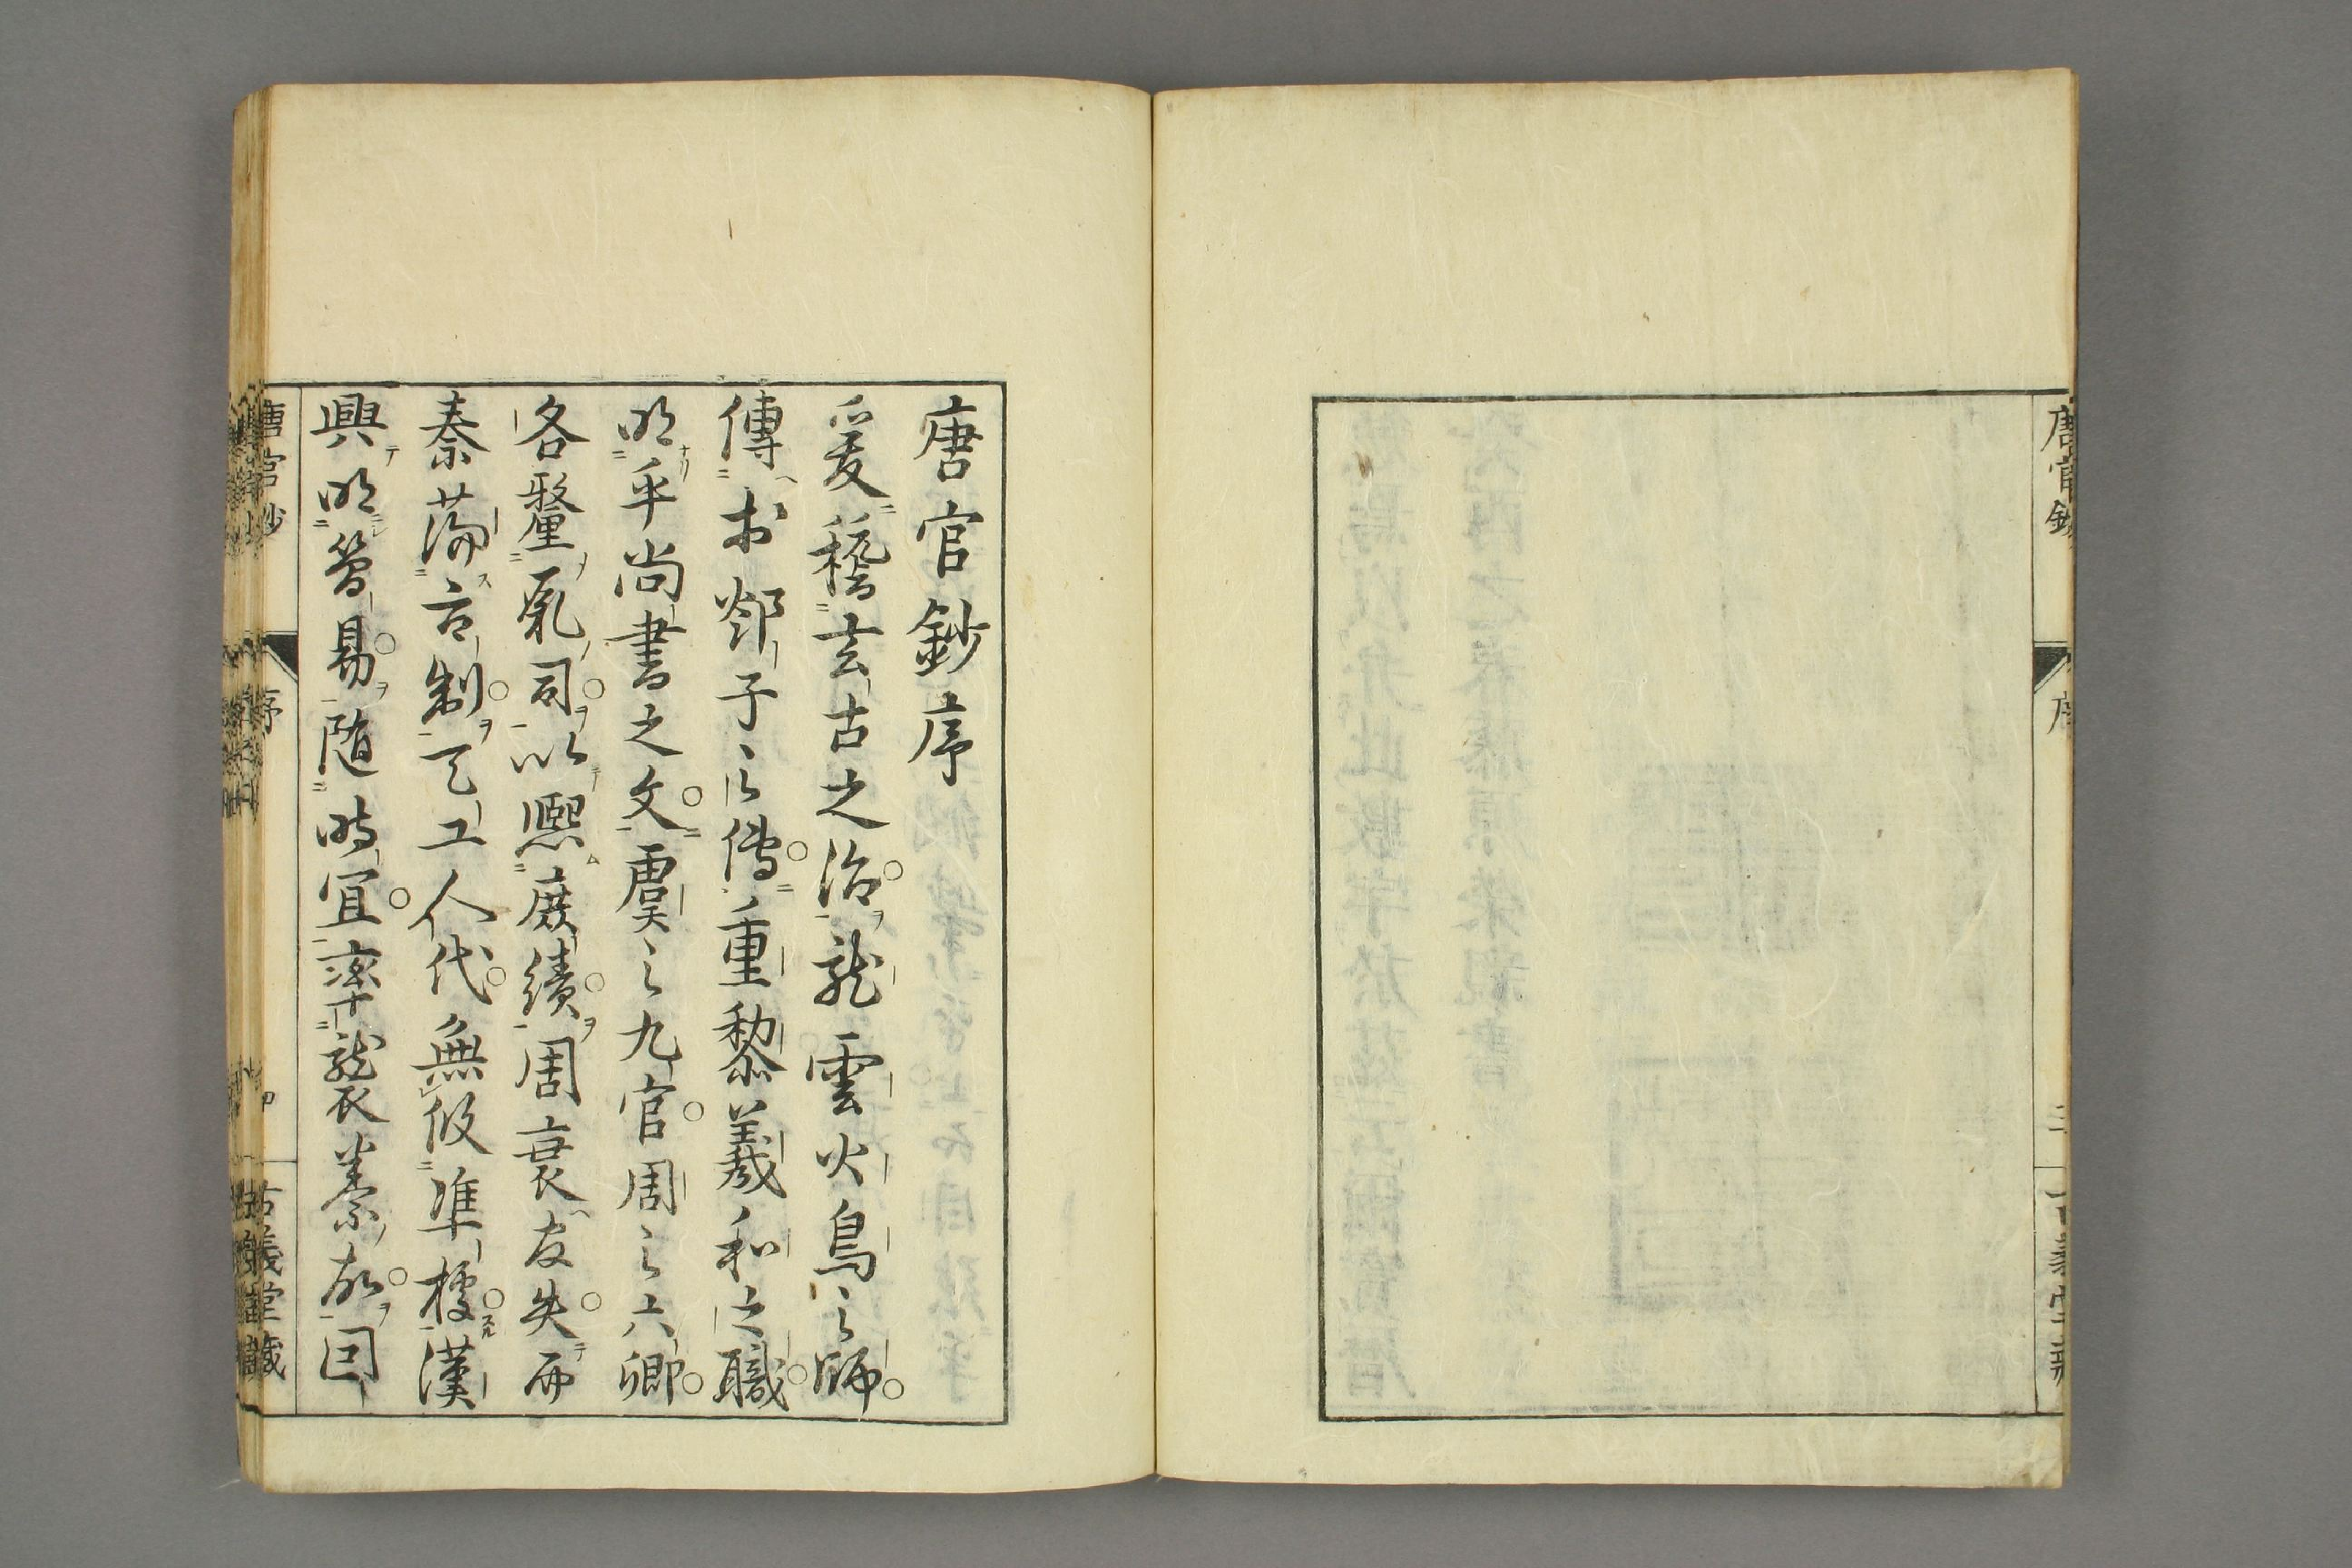 唐官鈔
序
三
古義堂藏
唐官鈔序
爰稽玄古之治龍雲火鳥之師
傳於郯子之傳重黎羲和之職
明乎尚書之文虞之九官周之六卿
各釐厥司以熙庶績周衰友失而
秦蕩古制天工人代無攸準據漢
興明簡易隨時宜率襲秦故因
唐官鈔
序
四
古義堂藏